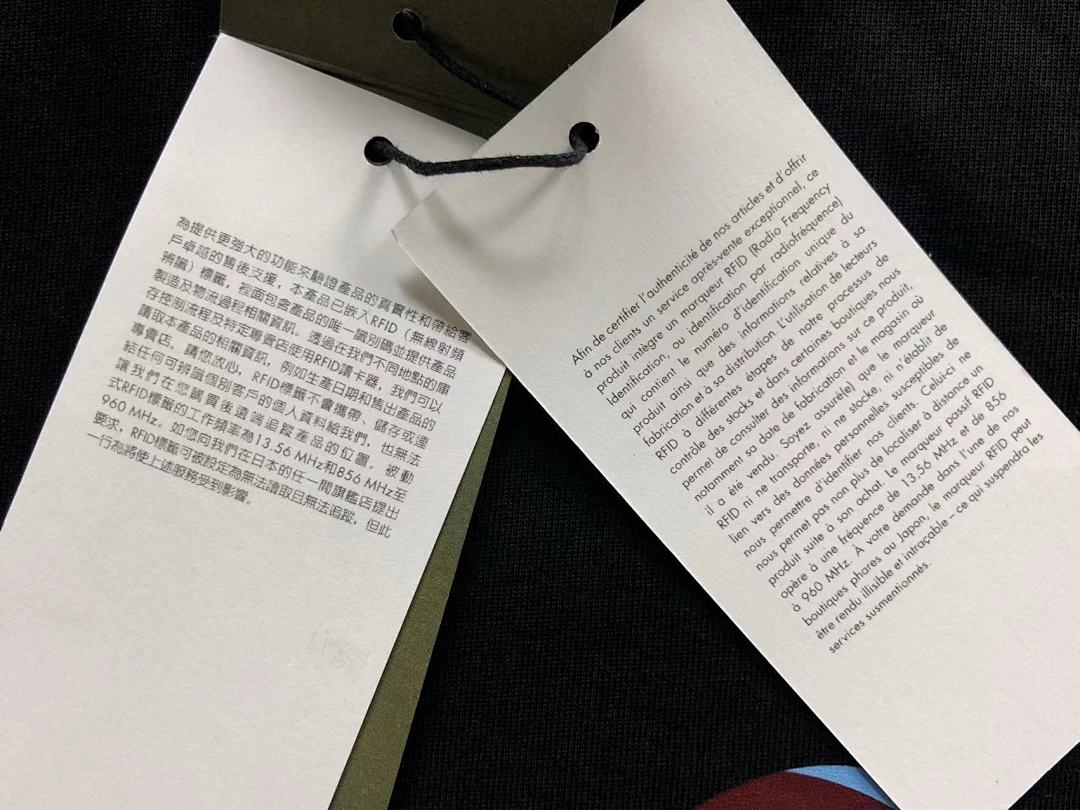 為提供更強大的功能來驗證產品的真實性和帶給客
戶卓越的售後支援，本產品已嵌入RFID（無線射頻
辨識）標籤，裡面包含產品的唯一識別碼並提供產品
製造及物流過程相關資訊。透過在我們不同地點的庫
存控制流程及特定專賣店使用RFID讀卡器，我們可以
讀取本產品的相關資訊，例如生產日期和售出產品的
專賣店。請您放心，RFID標籤不會攜帶、儲存或連
結任何可辨識個別客戶的個人資料給我們，也無法
讓我們在您購買後遠端追蹤產品的位置。被動
式RFID標籤的工作頻率為13.56 MHz和856 MHz至
960 MHz。如您向我們在日本的任一間旗艦店提出
要求，RFID標籤可被設定為無法讀取且無法追蹤，但此
一行為將使上述服務受到影響。
Afin de certifier l'authenticité de nos articles et d'offrir
à nos clients un service après-vente exceptionnel, ce
produit intègre un marqueur RFID (Radio Frequency
Identification, ou identification par radiofréquence)
qui contient le numéro d'identification unique du
produit ainsi que des informations relatives à sa
fabrication et à sa distribution. L'utilisation de lecteurs
RFID à différentes étapes de notre processus de
contrôle des stocks et dans certaines boutiques nous
permet de consulter des informations sur ce produit,
notamment sa date de fabrication et le magasin où
il a été vendu. Soyez assuré(e) que le marqueur
RFID ni ne transporte, ni ne stocke, ni n'établit de
lien vers des données personnelles susceptibles de
nous permettre d'identifier nos clients. Celui-ci ne
nous permet pas non plus de localiser à distance un
produit suite à son achat. Le marqueur passif RFID
opère à une fréquence de 13,56 MHz et de 856
à 960 MHz. À votre demande dans l'une de nos
boutiques phares au Japon, le marqueur RFID peut
être rendu illisible et intraçable – ce qui suspendra les
services susmentionnés.